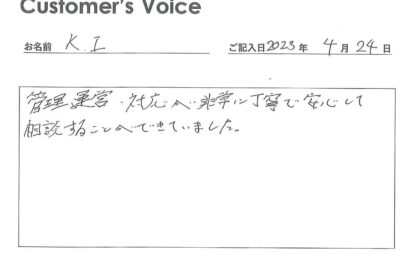 Customer's Voice
お名前 K.I ご記入日2023年 4月24日
管理運営・対応が非常に丁寧で安心して
相談することができていました。